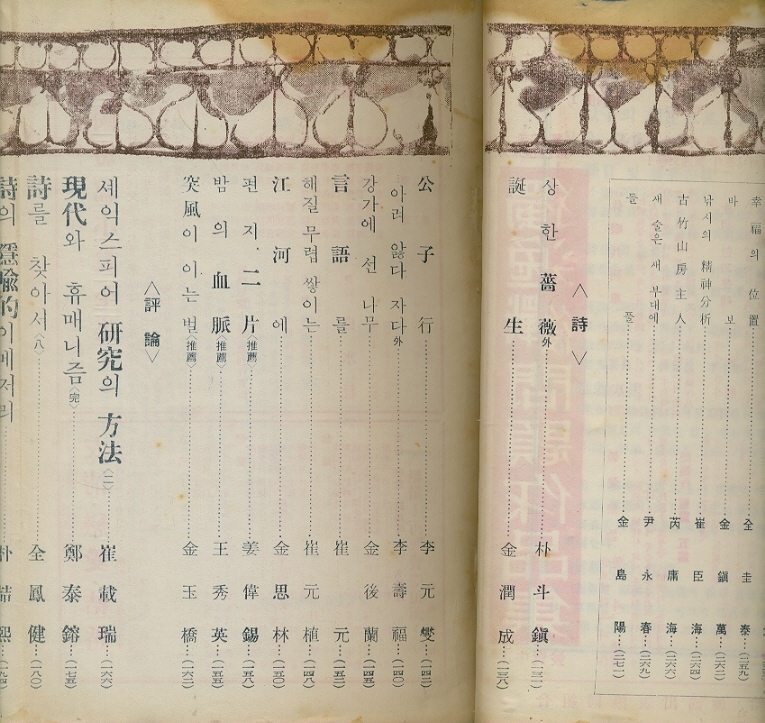 幸福의 位置 全圭泰 (二五九)
바보 金鎭萬 (二六二)
낚시의 精神分析 崔臣海 (二六四)
古竹山房主人 芮庸海 (二六六)
새 술은 새 부대에 尹永春 (二六九)
들풀 金島陽 (二七一)
〈詩〉
상한 薔薇外 朴斗鎭 (一三二)
誕生 金潤成 (一三八)
公子行 李元燮 (一四二)
아려 앓다 자다外 李壽福 (一四〇)
강가에 선 나무 金後蘭 (一四五)
言語를 崔元
해질 무렵 쌓이는 崔元植 (一四八)
江河에 金思林 (一五〇)
편지 二片〈推薦〉 姜偉錫 (一五八)
밤의 血脈〈推薦〉 王秀英 (一五五)
突風이 이는 벌〈推薦〉 金玉橋 (一六二)
〈評論〉
셰익스피어 硏究의 方法〈二〉 崔載瑞 (一六六)
現代와 휴매니즘〈完〉 鄭泰鎔 (一七五)
詩를 찾아서〈八〉 全鳳健 (一八〇)
詩의 隱喩的 이메저리 朴喆熙 (一九四)